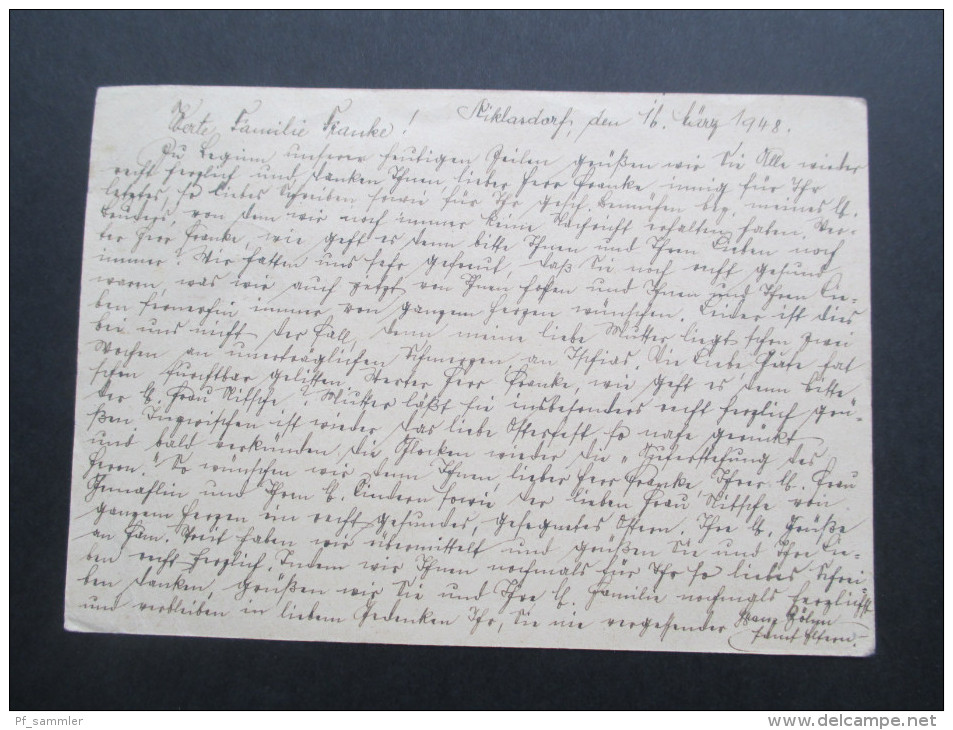 Werte Familie Franke! Niklasdorf, den 16. März 1948.
Zu Beginn unserer heutigen Zeilen grüßen wir Sie Alle wieder
recht herzlich und danken Ihnen, lieber Herr Franke innig für Ihr
letztes, so liebes Schreiben, sowie für Ihr gesch. Bemühen bzg. meines lb.
Bruders, von dem wir noch immer keine Nachricht erhalten haben. Wer-
ter Herr Franke, wie geht es denn bitte Ihnen und Ihren Lieben noch
immer? Wir hatten uns sehr gefreut, daß Sie noch recht gesund
waren, was wir auch jetzt von Ihnen hoffen und Ihnen und Ihren Lie-
ben fernerhin immer von ganzem Herzen wünschen. Leider ist dies
bei uns nicht der Fall, denn meine liebe Mutter liegt schon zwei
Wochen an unerträglichen Schmerzen, an Ischias. Die Liebe Gute hat
schon furchtbar gelitten. Werter Herr Franke, wie geht es denn bitte
der lb. Frau Nitsche? Mutter läßt sie insbesonders recht herzlich grü-
ßen. Inzwischen ist wieder das liebe Osterfest so nahe gerückt
und bald verkünden die Glocken wieder die „Auferstehung des
Herrn." So wünschen wir denn Ihnen, lieber Herr Franke, Ihrer lb. Frau
Gemahlin und Ihren lb. Kindern sowie der lieben Frau Nitsche von
ganzem Herzen ein recht gesundes, gesegnetes Ostern. Ihre lb. Grüße
an Fam. haben wir übermittelt und grüßen Sie und Ihre Lie-
ben recht herzlich. Indem wir Ihnen nochmals für Ihr so liebes Schrei-
ben danken, grüßen wir Sie und Ihre lb. Familie nochmals herzlichst
und verbleiben in liebem Gedenken Ihr, Sie nie vergessender
samt Eltern.
Pf_sammler
www.delcampe.net